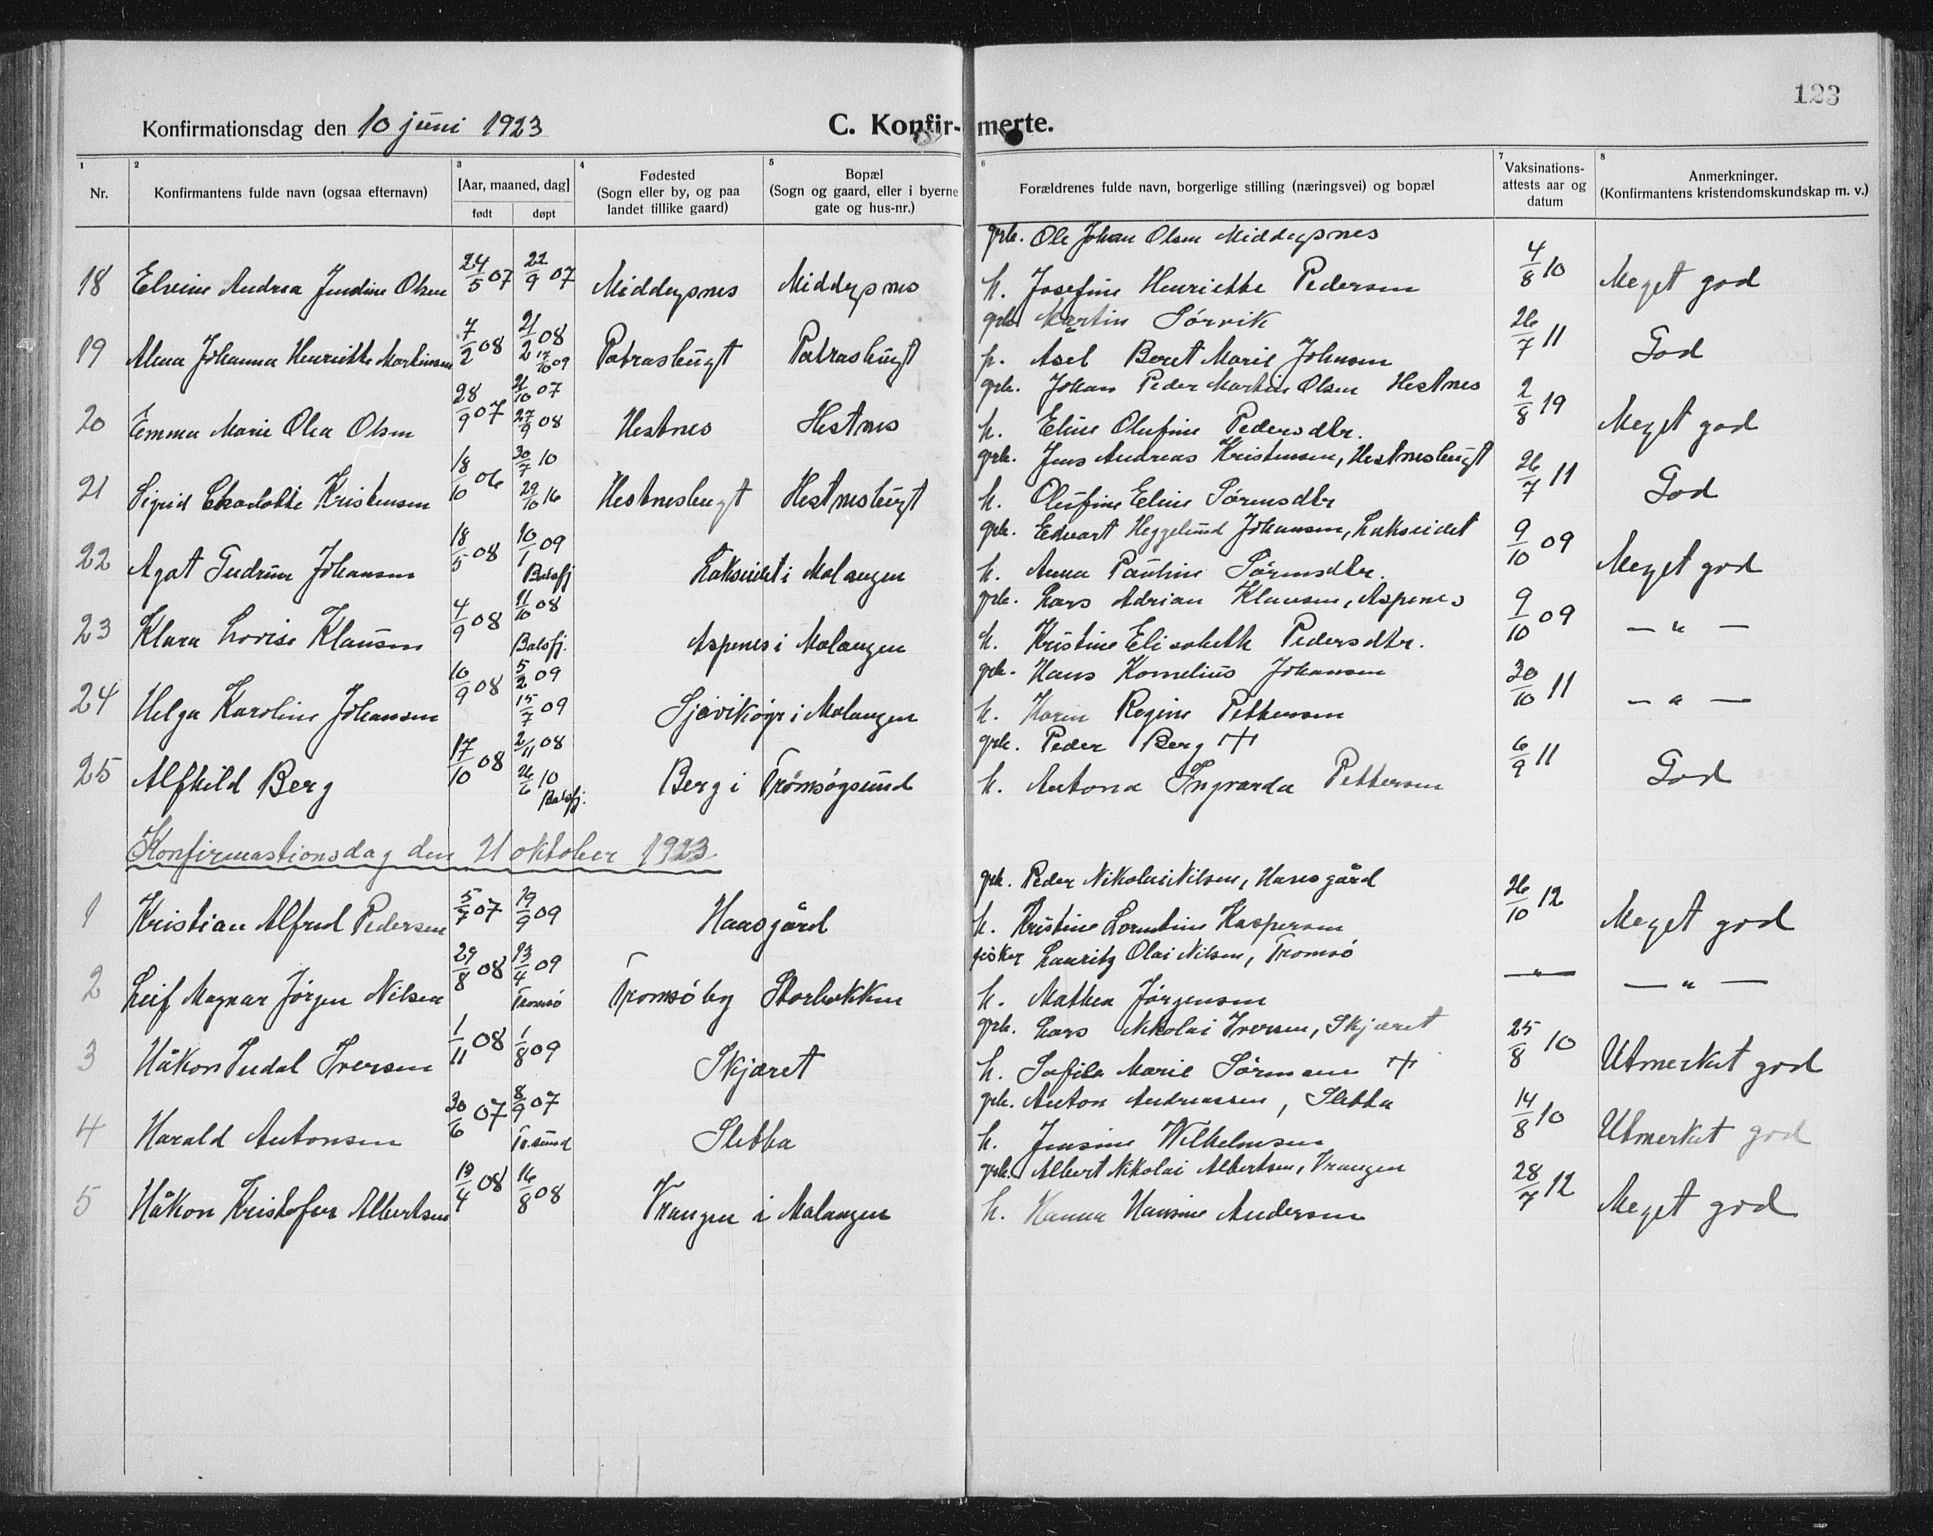 123
Konfirmationsdag den 10 juni 1923 C. Konfir- merte.
1 2 3 4 5 6 7 8
Nr. Konfirmantens fulde navn (ogsaa efternavn) [Aar, maaned, dag] født døpt Fødested (Sogn eller by, og paa landet tillike gaard) Bopæl (Sogn og gaard, eller i byerne gate og hus-nr.) Forældrenes fulde navn, borgerlige stilling (næringsvei) og bopæl Vaksinations-attests aar og datum Anmerkninger. (Konfirmantens kristendomskundskap m. v.)
grb. Ole Johan Olsen Middagsnes
18 Elvine Andrea Jendine Olsen 24/5 07 22/9 07 Middagsnes Middagsnes h. Josefine Henriette Pedersen 4/8 10 Meget god
grb. Martin Sørvik
19 Alma Johanna Henriette Martinsen 7/2 08 21/2 08 Patrasbugt Patrasbugt p. Asel Beret Marie Johnsen 26/7 11 God
17/10 09
grb. Johan Peder Martin Olsen Hestnes
21/10 07
20 Emma Marie Olea Olsen 28/9 07 27/9 08 Hestnes Hestnes h. Eline Olufine Pedersdtr. 2/8 19 Meget god
grb. Jens Andreas Kristensen, Hestnesbugt
30/7 10
21 Sigrid Charlotte Kristensen 18/10 06 29/10 16 Hestnesbugt Hestnesbugt h. Olufine Eline Sørensdtr 26/7 11 God
grb. Edvart Heggelund Johansen, Lakseidet
22 Agot Gudrun Johansen 18/5 08 10/1 09 Balsfj Lakseidet i Malangen h. Anna Pauline Sørensdtr. 9/10 09 Meget god
grb. Lars Adrian Klausen, Aspenes
23 Klara Lovise Klausen 4/9 08 11/10 08 Balsfj. Aspenes i Malangen h. Kristine Elisabeth Pedersdtr. 9/10 09 — " —
grb. Hans Kornelius Johansen
5/2 09
24 Helga Karoline Johansen 10/9 08 15/7 09 Sjøvikøyr i Malangen h. Karen Regine Pettersen 30/10 11 — " —
grb. Peder Berg +
2/11 08
25 Alfhild Berg 17/10 08 26/6 10 Balsfj. Berg i Tromsøysund h. Antona Ingvarda Pettersen 6/9 11 God
Konfirmastionsdag den 21 oktober 1923
grb. Peder Nikolai Nilsen, Haasgård
1 Kristian Alfred Pedersen 5/7 07 19/9 09 Haasgård h. Kristine Lorentine Kaspersen 26/10 12 Meget god
fisker Lauritz Olai Nilsen, Tromsø
2 Leif Magnar Jørgen Nilsen 29/8 08 13/4 09 Tromsø Tromsø by Storbakken h. Mathea Jørgensen — " — — " —
grb. Lars Nikolai Iversen, Skjæret
3 Håkon Iversen 1/11 08 1/8 09 Skjæret h. Sofie Marie Sørensen + 25/8 10 Utmerket god
grb. Anton Andreassen, Sletta
4 Harald Antonsen 30/6 07 8/9 07 Tr.sund Sletta h. Jensine Wilhelmsen 14/8 10 Utmerket god
grb. Albert Nikolai Albertsen, Vrangen
5 Håkon Kristofer Albertsen 19/4 08 16/8 08 Vrangen i Malangen h. Hanna Hansine Andersen 28/7 12 Meget god